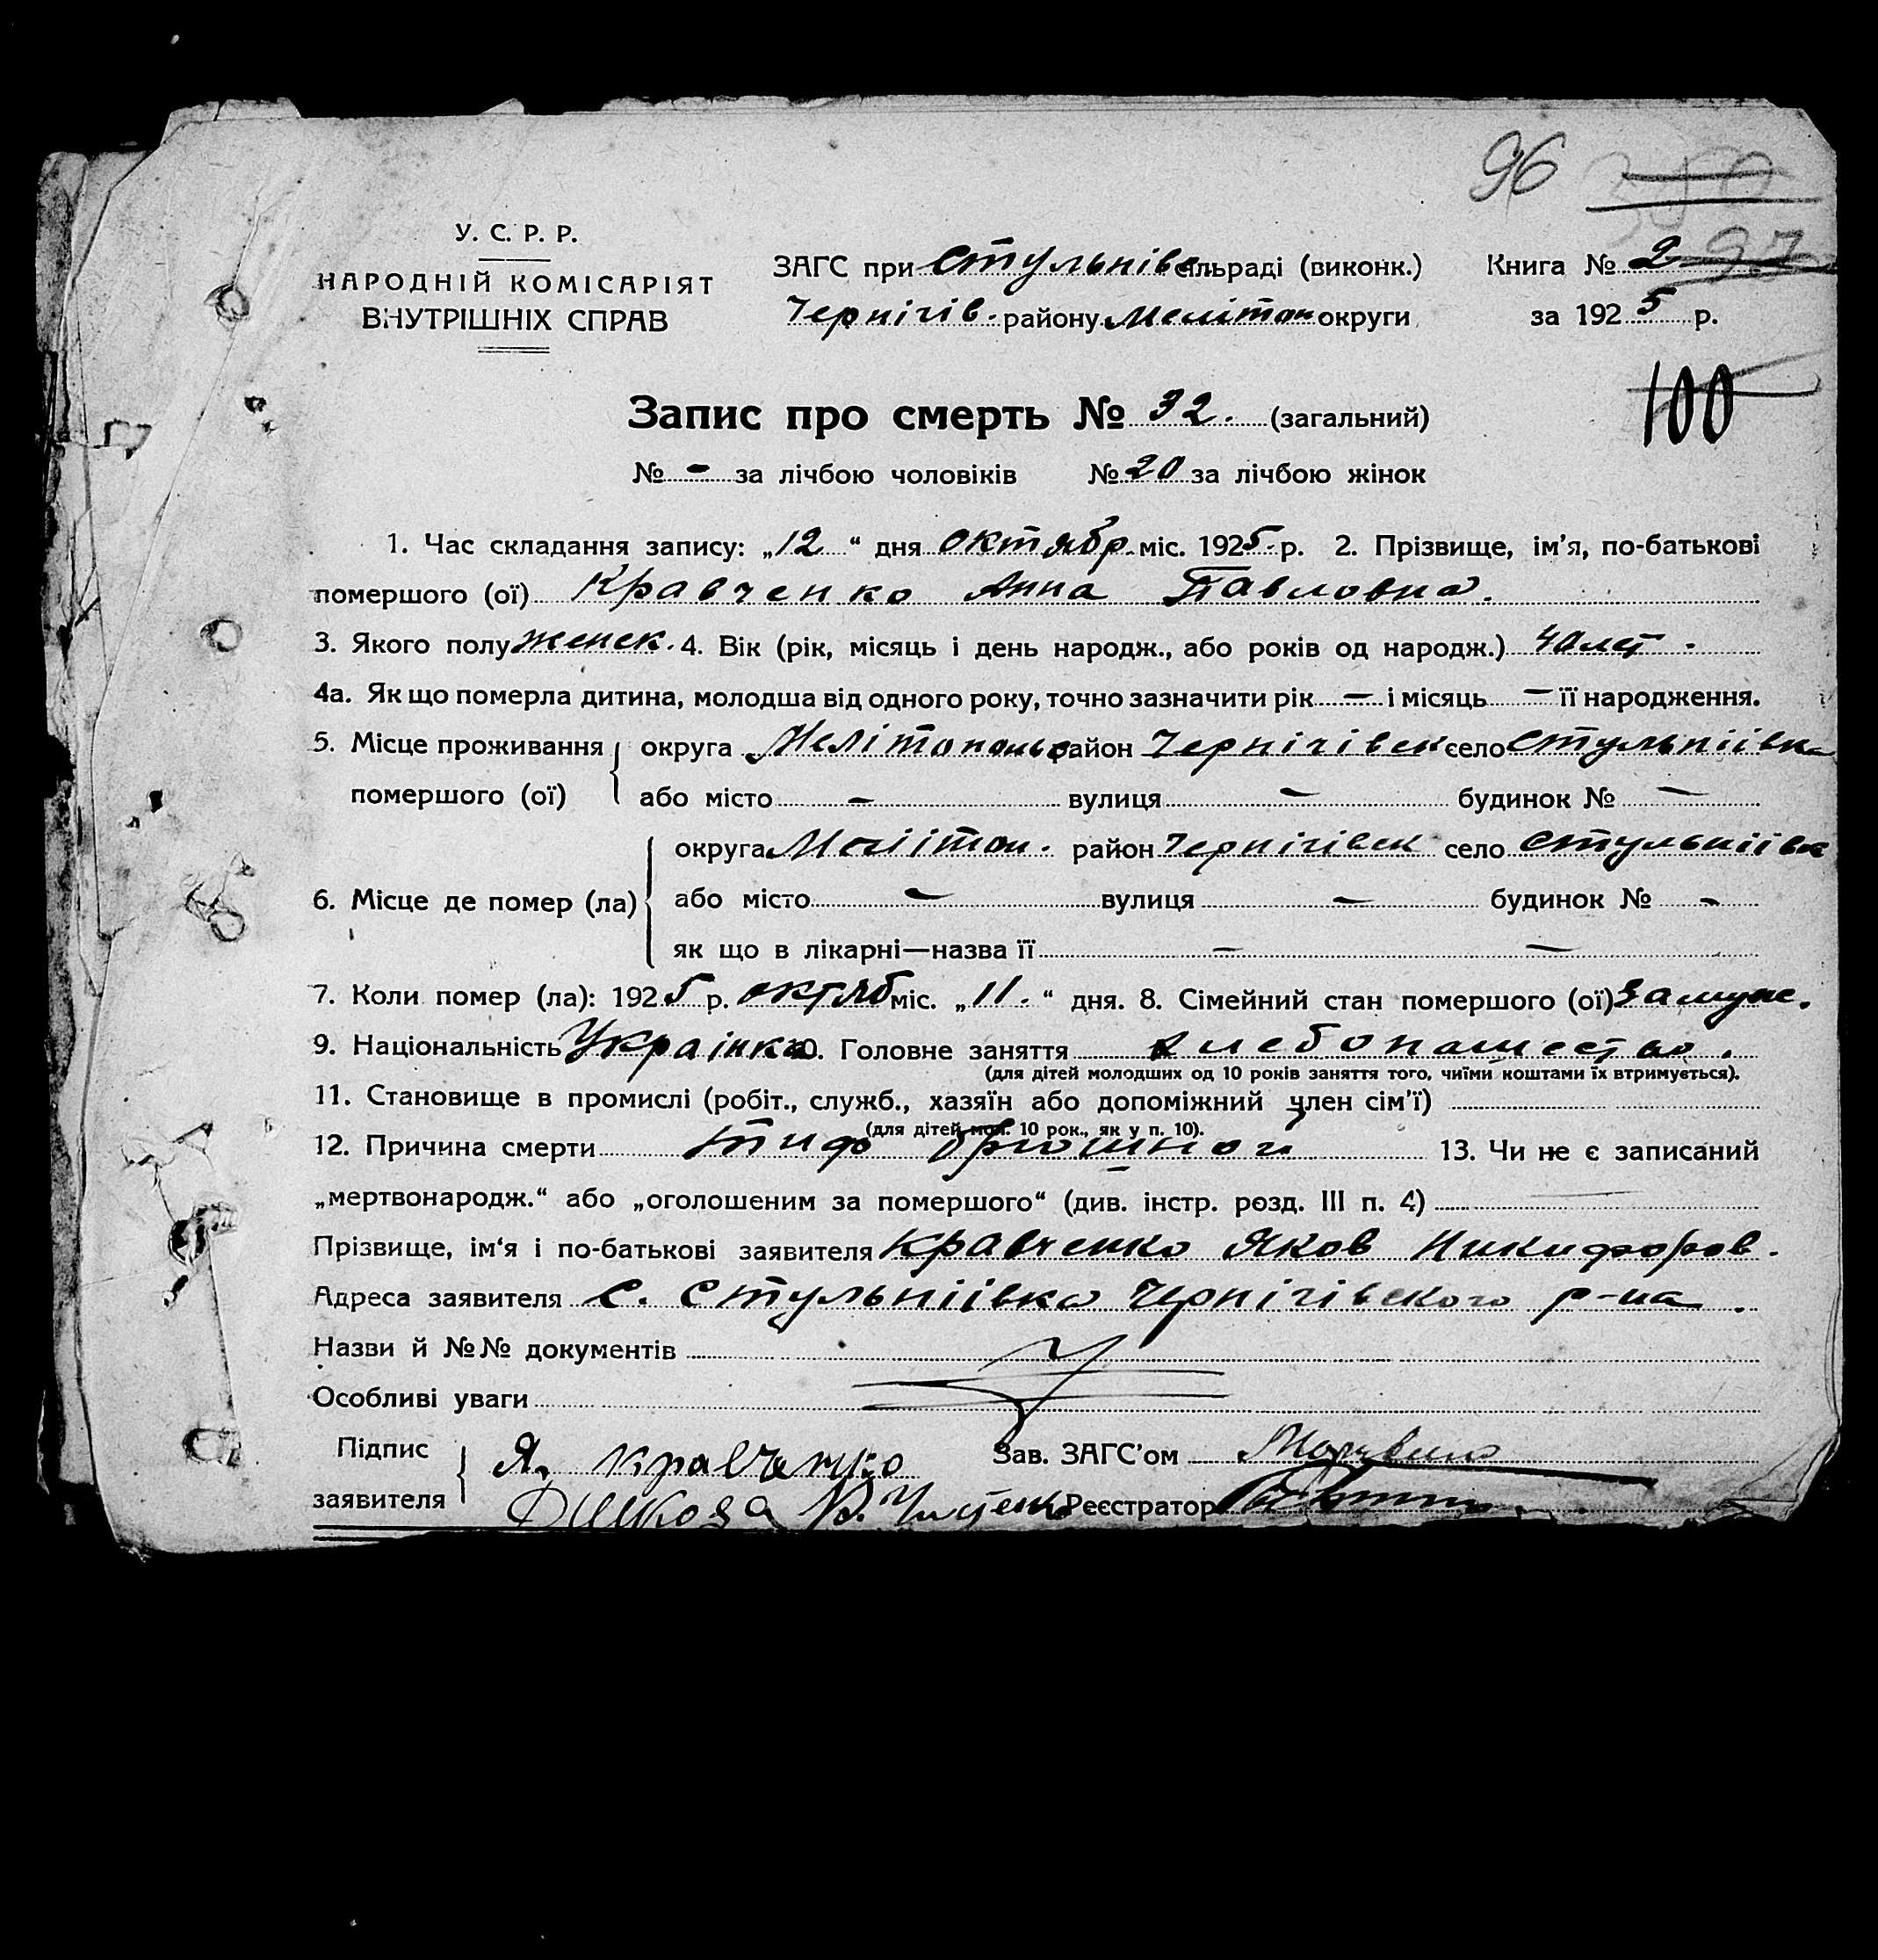 96
У. С. Р. Р.
НАРОДНІЙ КОМІСАРІЯТ
ВНУТРІШНІХ СПРАВ
ЗАГС при Стульнівс сільраді (виконк.) Книга № 2 97
Чернігів. району Мелітоп округи за 1925 р.
100
Запис про смерть № 32. (загальний)
№ - за лічбою чоловіків № 20 за лічбою жінок
1. Час складання запису: „12“ дня октябр. міс. 1925. р. 2. Прізвище, ім'я, по-батькові
помершого (ої) Кравченко Анна Павловна.
3. Якого полу женск. 4. Вік (рік, місяць і день народж., або років од народж.) 40 лет.
4а. Як що померла дитина, молодша від одного року, точно зазначити рік — і місяць — її народження.
5. Місце проживання округа Мелітопольс район Чернігівск село Стульніівка
помершого (ої) або місто — вулиця — будинок № —
округа Меліітоп. район Чернігівск село Стульніівк
6. Місце де помер (ла) або місто — вулиця — будинок № -
як що в лікарні—назва її — —
7. Коли помер (ла): 1925 р. октяб міс. „11.“ дня. 8. Сімейний стан помершого (ої) Замуж.
9. Національність Украінка 10. Головне заняття хлебопашество.
(для дітей молодших од 10 років заняття того, чиїми коштами їх втримується).
11. Становище в промислі (робіт., служб., хазяїн або допоміжний член сім'ї)
(для дітей мол. 10 рок., як у п. 10).
12. Причина смерти тиф брюшной 13. Чи не є записаний
„мертвонародж.“ або „оголошеним за помершого“ (див. інстр. розд. III п. 4)
Прізвище, ім'я і по-батькові заявителя Кравченко Яков Никифоров.
Адреса заявителя с. Стульніівка Чернігівского р-на.
Назви й №№ документів
Особливі уваги
Підпис Я. Кравченко Зав. ЗАГС'ом
заявителя Реєстратор